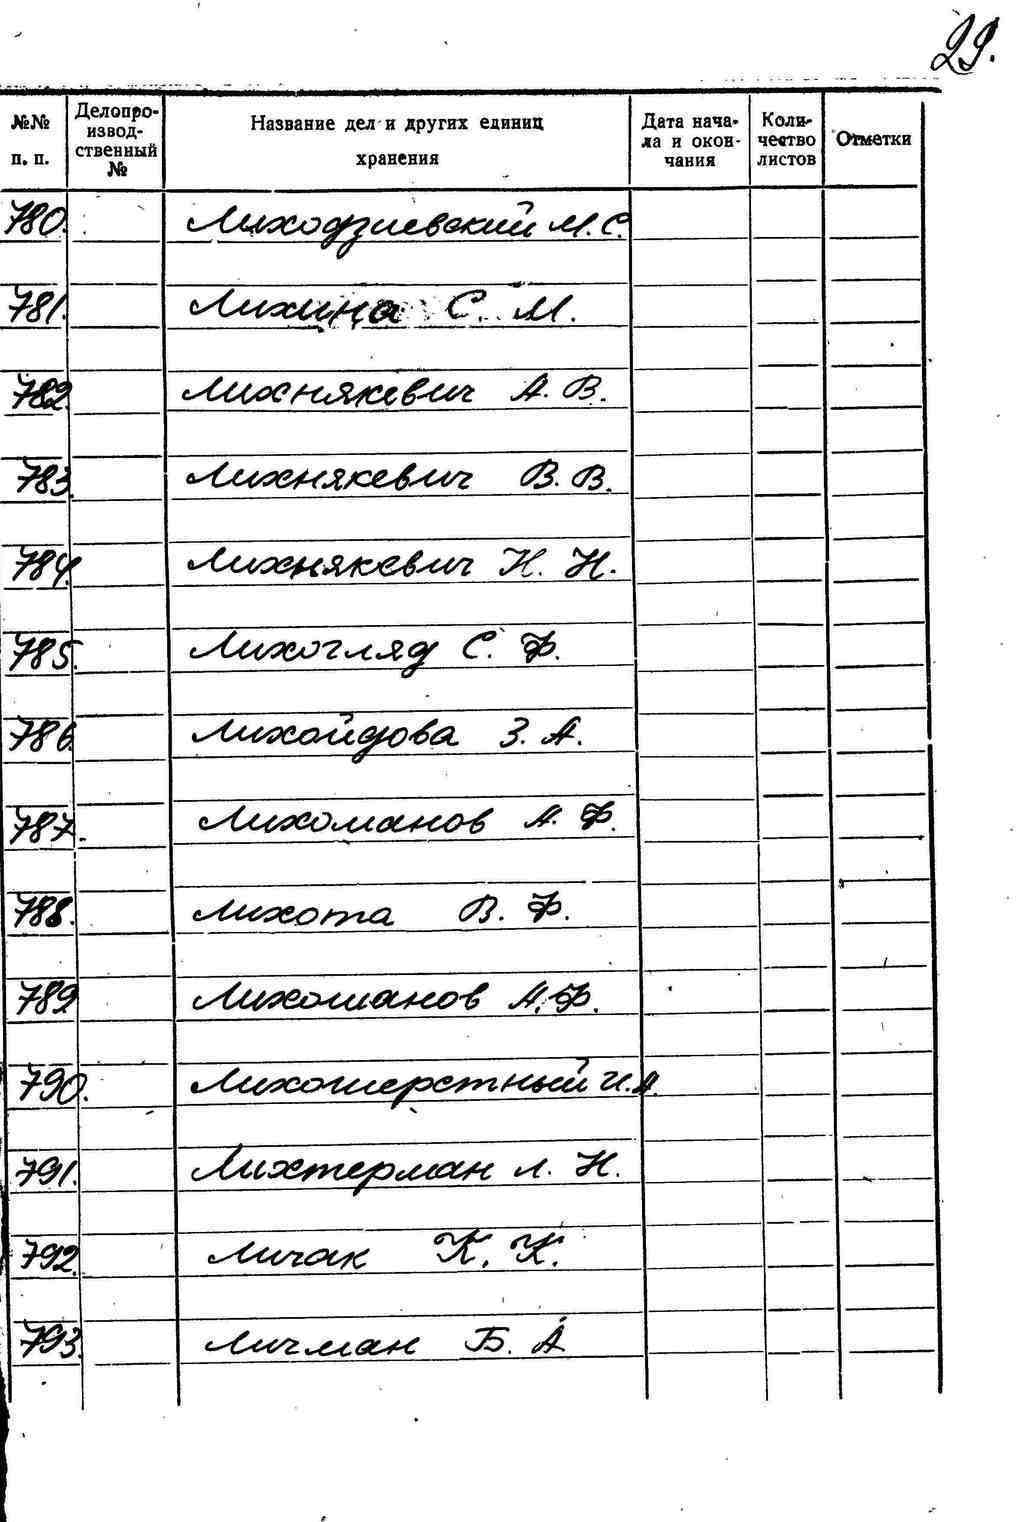 29.
№№ п. п. Делопроизводственный № Название дел и других единиц хранения Дата начала и окончания Количество листов Отметки
780. Лиходзиевский М. С.
781. Лихина С. М.
782. Лихнякевич А. В.
783. Лихнякевич В. В.
784. Лихнякевич Н. Н.
785. Лихогляд С. Ф.
786. Лихойдова З. А.
787. Лихоманов А. Ф.
788. Лихота В. Ф.
789 Лихошанов А. Ф.
790. Лихошерстный И. А.
791. Лихтерман Л. Н.
792. Личак К. К.
793. Личман Б. А